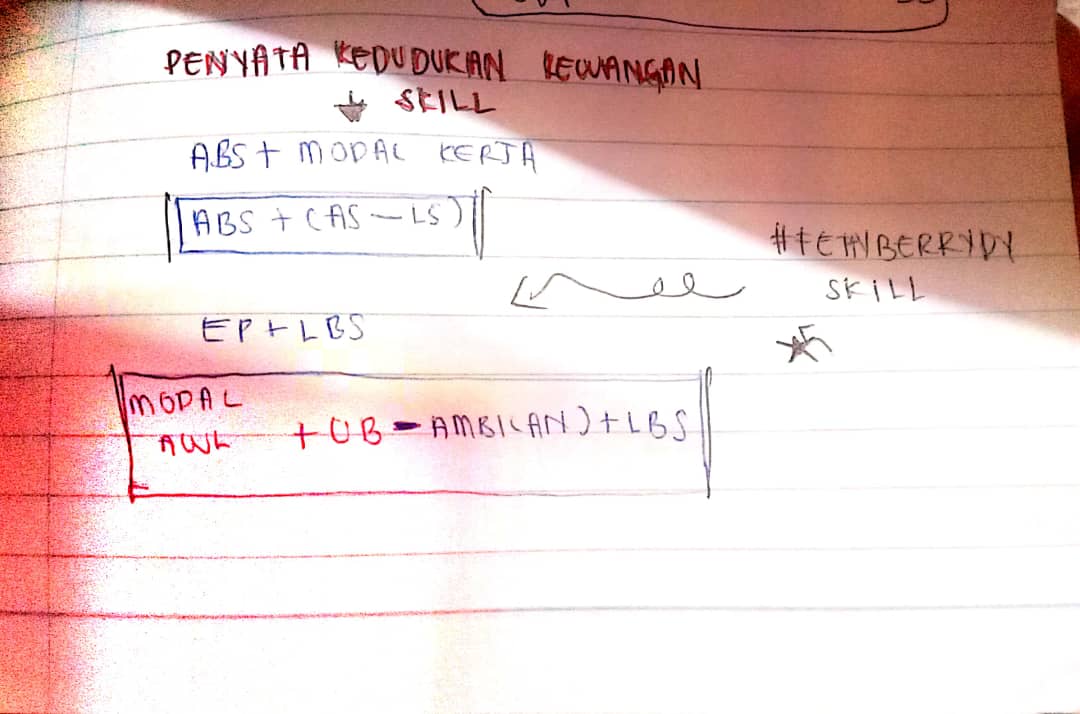 PENYATA KEDUDUKAN KEWANGAN
SKILL
ABS + MODAL KERJA
ABS + (AS - LS)
SKILL
EP + LBS
MODAL
AWL + UB - AMBILAN) + LBS